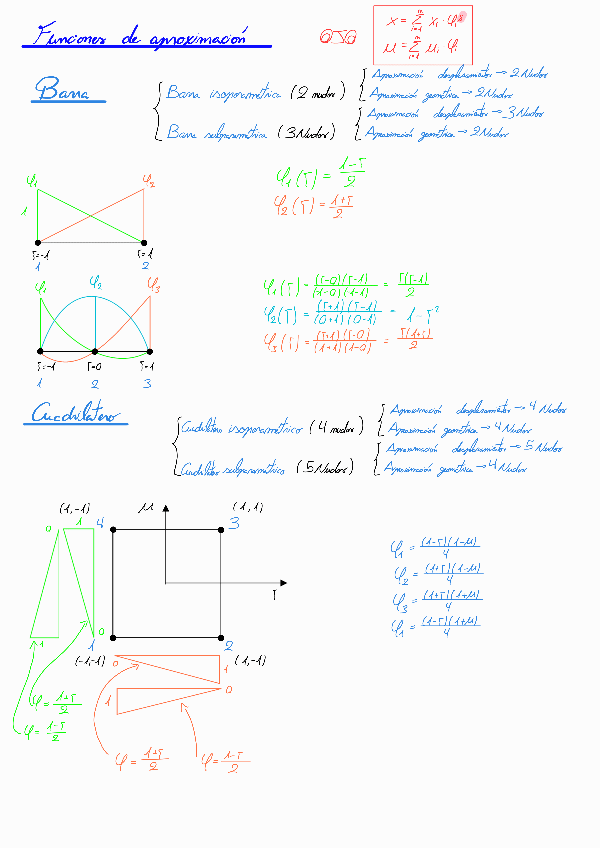 Funciones de aproximación
OJO
x = Σ xᵢ · φᵢ
μ = Σ μᵢ φᵢ
Barra
Barra isoparamétrica (2 nudos)
Aproximación desplazamientos → 2 Nudos
Aproximación geométrica → 2 Nudos
Barra subparamétrica (3 Nudos)
Aproximación desplazamientos → 3 Nudos
Aproximación geométrica → 2 Nudos
φ1 φ2
1
ζ=-1 ζ=1
1 2
φ1(ζ) = (1-ζ)/2
φ2(ζ) = (1+ζ)/2
φ1 φ2 φ3
ζ=-1 ζ=0 ζ=1
1 2 3
φ1(ζ) = (ζ-0)(ζ-1)/(-1-0)(-1-1) = ζ(ζ-1)/2
φ2(ζ) = (ζ+1)(ζ-1)/(0+1)(0-1) = 1-ζ²
φ3(ζ) = (ζ+1)(ζ-0)/(1+1)(1-0) = ζ(1+ζ)/2
Cuadrilátero
Cuadrilátero isoparamétrico (4 nudos)
Aproximación desplazamientos → 4 Nudos
Aproximación geométrica → 4 Nudos
Cuadrilátero subparamétrico (5 Nudos)
Aproximación desplazamientos → 5 Nudos
Aproximación geométrica → 4 Nudos
(1,-1) μ (1,1)
0 1 4 3
ζ
1 0 1 2
(-1,-1) (1,-1)
0 1
1 0
φ1 = (1-ζ)(1-μ)/4
φ2 = (1+ζ)(1-μ)/4
φ3 = (1+ζ)(1+μ)/4
φ1 = (1-ζ)(1+μ)/4
φ = (1+ζ)/2
φ = (1-ζ)/2
φ = (1+ζ)/2 φ = (1-ζ)/2